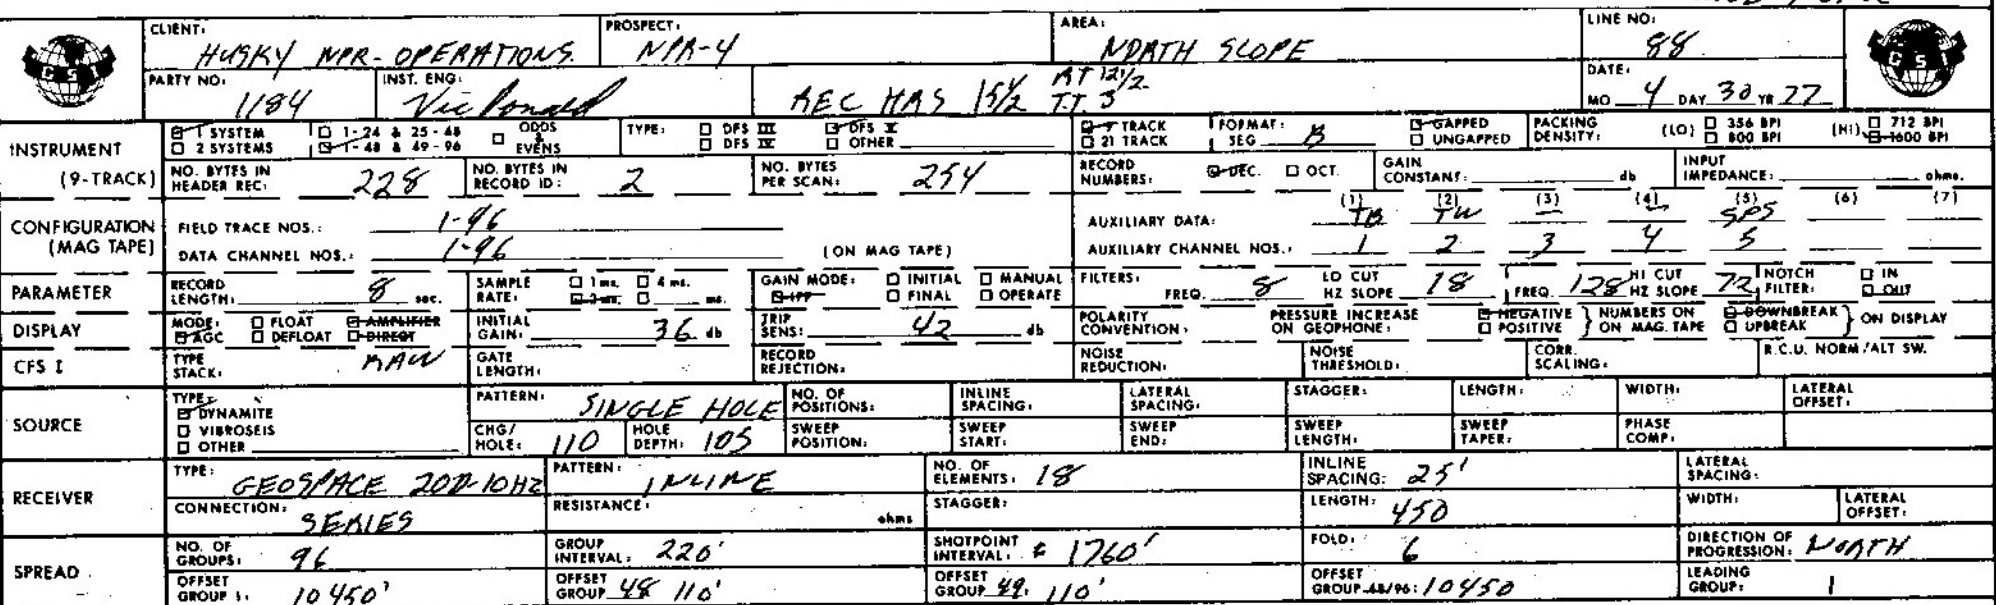 CLIENT: HUSKY NPR-OPERATIONS PROSPECT: NPR-4 AREA: NORTH SLOPE LINE NO: 88
GSI GSI
PARTY NO: 1184 INST. ENG: Vic Donald REC HRS 15½ RT 12½ T.T. 3 DATE: MO 4 DAY 30 YR 77
INSTRUMENT (9-TRACK)
1 SYSTEM 1-24 & 25-48 ODDS & EVENS TYPE: DFS III DFS V 9 TRACK FORMAT: GAPPED PACKING DENSITY: (LO) 356 BPI (HI) 712 BPI
2 SYSTEMS 1-48 & 49-96 DFS IV OTHER 21 TRACK SEG B UNGAPPED 800 BPI 1600 BPI
NO. BYTES IN HEADER REC: 228 NO. BYTES IN RECORD ID: 2 NO. BYTES PER SCAN: 254 RECORD NUMBERS: DEC. OCT. GAIN CONSTANT: db INPUT IMPEDANCE: ohms.
CONFIGURATION (MAG TAPE)
FIELD TRACE NOS.: 1-96 AUXILIARY DATA: (1) TB (2) TW (3) — (4) — (5) SPS (6) (7)
DATA CHANNEL NOS.: 1-96 (ON MAG TAPE) AUXILIARY CHANNEL NOS.: 1 2 3 4 5
PARAMETER RECORD LENGTH: 8 sec. SAMPLE RATE: 1 ms. 4 ms. 2 ms. ms. GAIN MODE: INITIAL MANUAL IFP FINAL OPERATE FILTERS: FREQ. 8 LO CUT HZ SLOPE 18 FREQ. 128 HI CUT HZ SLOPE 72 NOTCH FILTER: IN OUT
DISPLAY MODE: FLOAT AMPLIFIER AGC DEFLOAT DIRECT INITIAL GAIN: 36 db TRIP SENS: 42 db POLARITY CONVENTION: PRESSURE INCREASE ON GEOPHONE: NEGATIVE POSITIVE } NUMBERS ON ON MAG. TAPE DOWNBREAK UPBREAK } ON DISPLAY
CFS I TYPE STACK: RAW GATE LENGTH: RECORD REJECTION: NOISE REDUCTION: NOISE THRESHOLD: CORR. SCALING: R.C.U. NORM/ALT SW.
SOURCE TYPE: DYNAMITE VIBROSEIS OTHER
PATTERN: SINGLE HOLE NO. OF POSITIONS: INLINE SPACING: LATERAL SPACING: STAGGER: LENGTH: WIDTH: LATERAL OFFSET:
CHG/HOLE: 110 HOLE DEPTH: 105 SWEEP POSITION: SWEEP START: SWEEP END: SWEEP LENGTH: SWEEP TAPER: PHASE COMP:
RECEIVER TYPE: GEOSPACE 20D-10HZ PATTERN: INLINE NO. OF ELEMENTS: 18 INLINE SPACING: 25' LATERAL SPACING:
CONNECTION: SERIES RESISTANCE: ohms STAGGER: LENGTH: 450 WIDTH: LATERAL OFFSET:
SPREAD NO. OF GROUPS: 96 GROUP INTERVAL: 220' SHOTPOINT INTERVAL: 1760' FOLD: 6 DIRECTION OF PROGRESSION: NORTH
OFFSET GROUP 1: 10450' OFFSET GROUP 48 110' OFFSET GROUP 49: 110' OFFSET GROUP 48/96: 10450 LEADING GROUP: 1